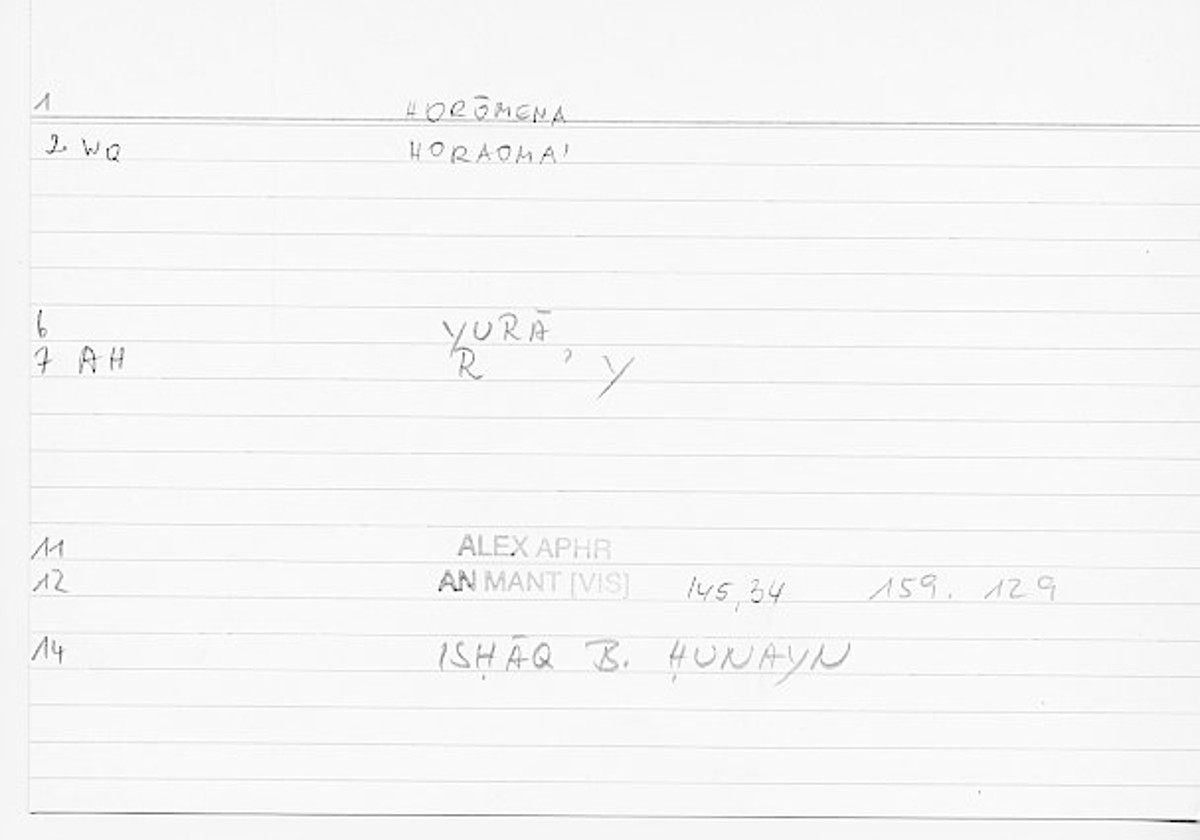 1 HORŌMENA
2 WQ HORAOMA'
6 YURĀ
7 AH R ' Y
11 ALEX APHR
12 AN MANT [VIS] 145,34 159. 129
14 ISḤĀQ B. ḤUNAYN